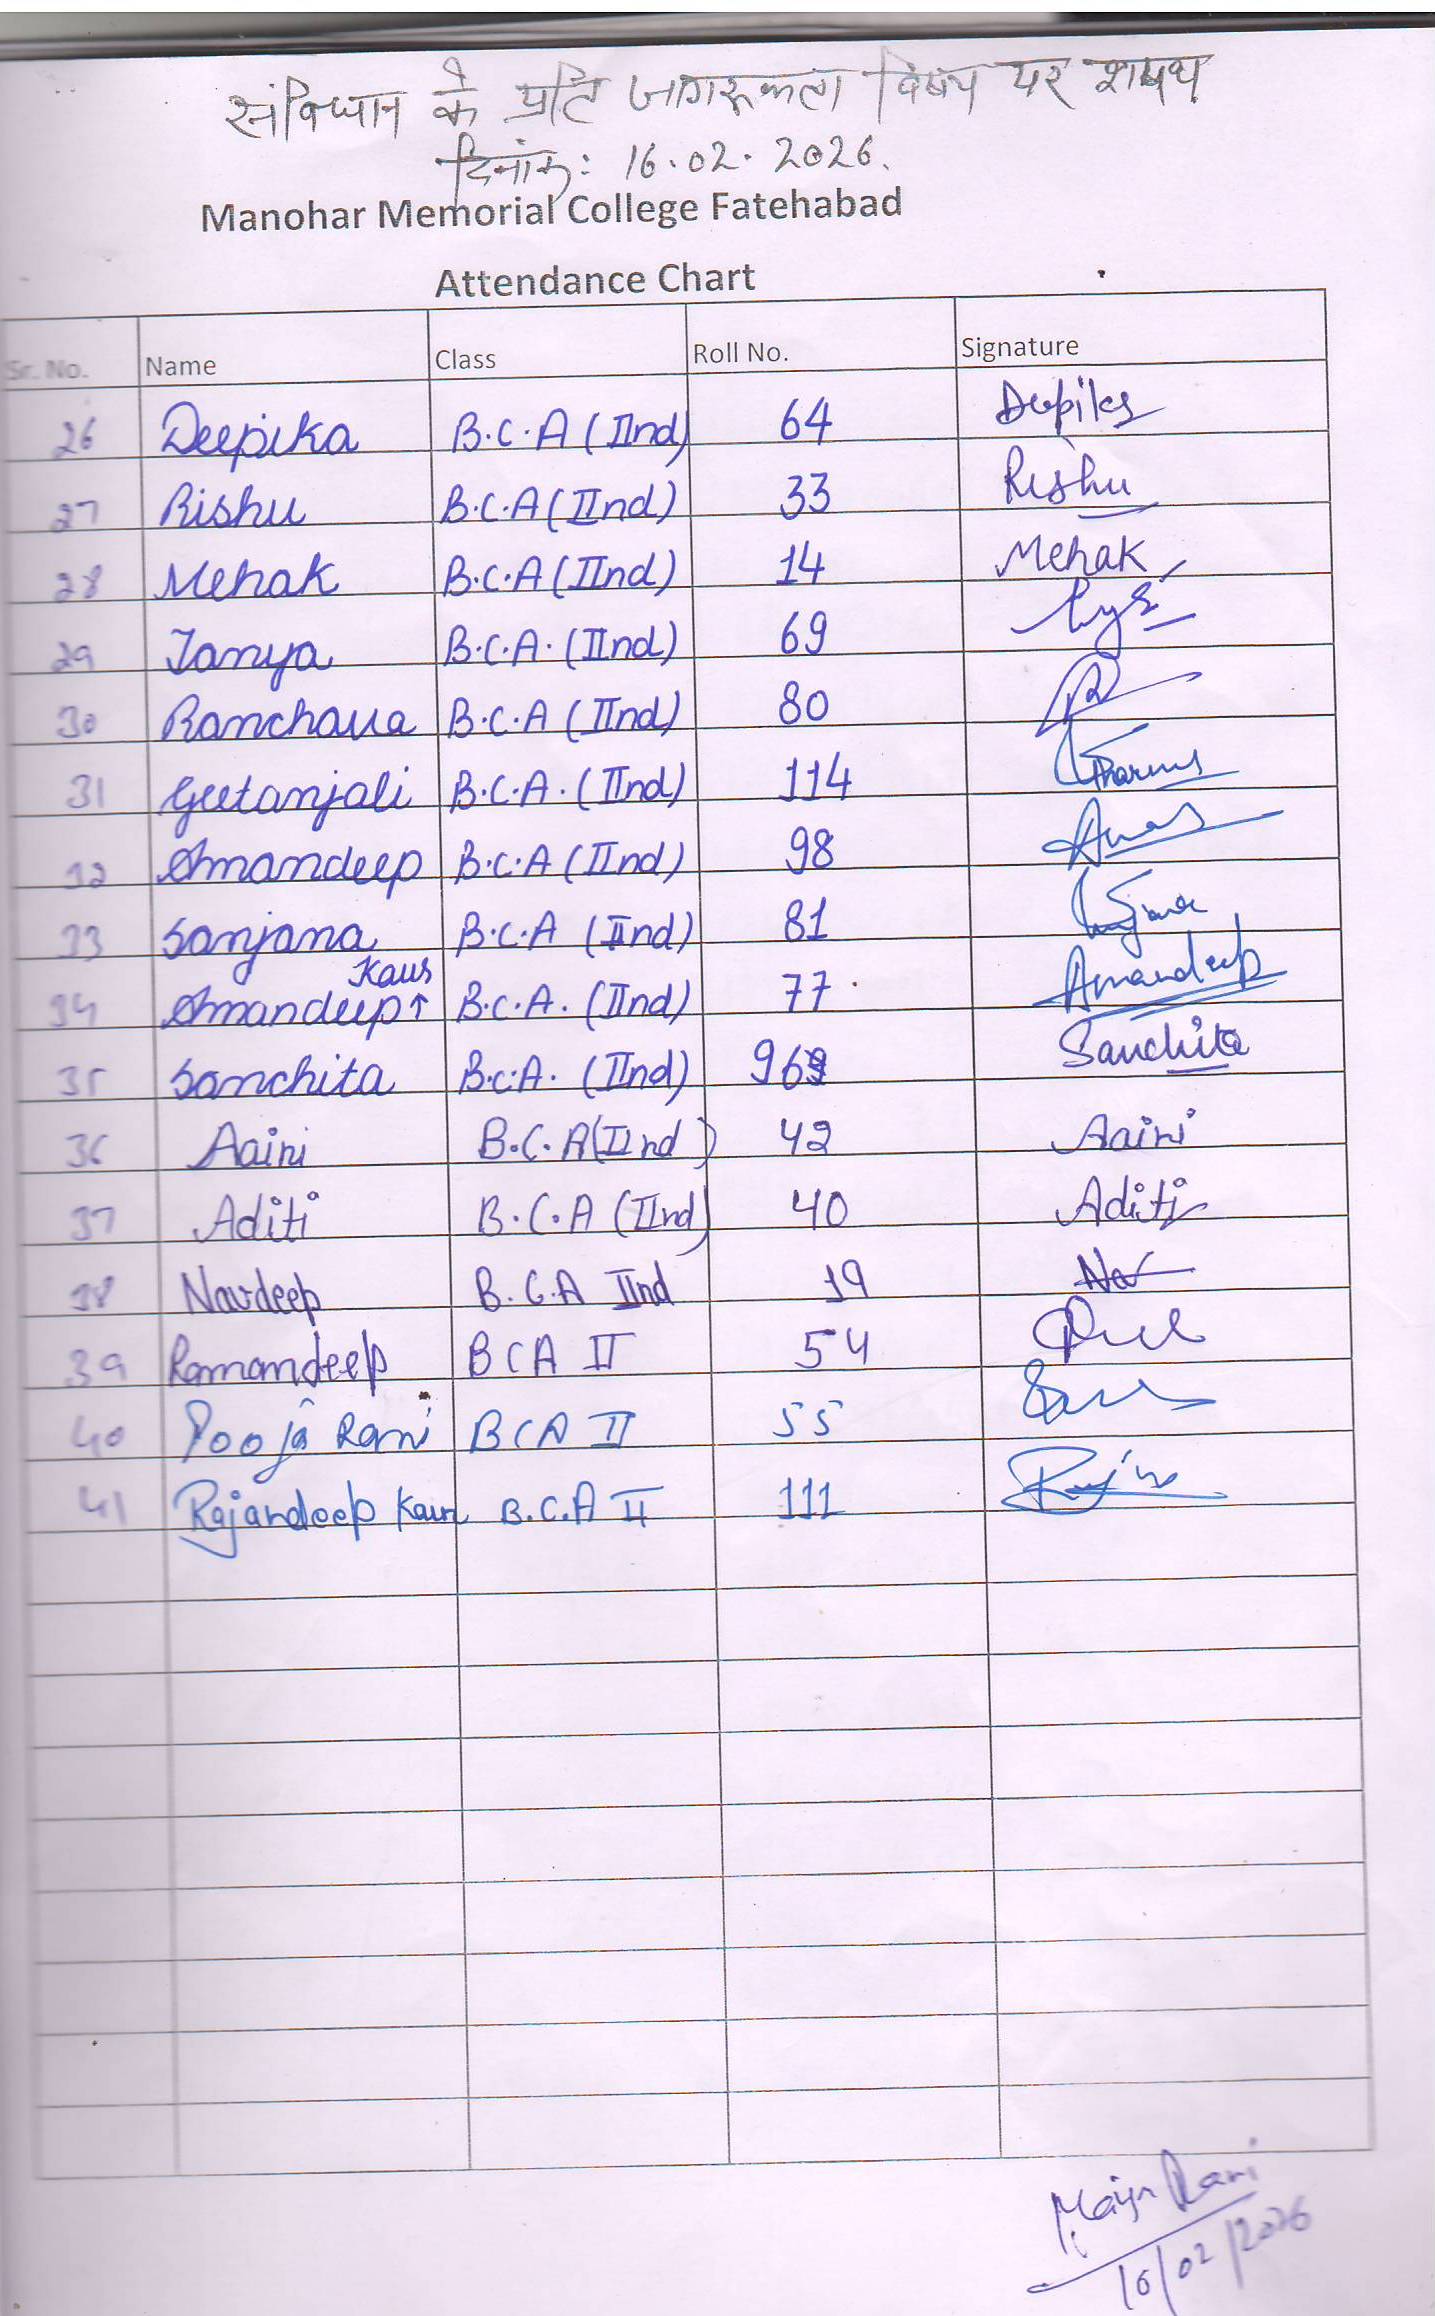 संविधान के प्रति जागरूकता विषय पर शपथ
दिनांक: 16.02.2026.
Manohar Memorial College Fatehabad
Attendance Chart
Sr. No. Name Class Roll No. Signature
26 Deepika B.C.A (IInd) 64 Deepika
27 Rishu B.C.A (IInd) 33 Rishu
28 Mehak B.C.A (IInd) 14 Mehak
29 Tanya B.C.A. (IInd) 69
30 B.C.A (IInd) 80
31 Geetanjali B.C.A. (IInd) 114
32 Amandeep B.C.A (IInd) 98
33 Sanjana B.C.A (IInd) 81
34 Amandeep Kaur B.C.A. (IInd) 77 Amandeep
35 Sanchita B.C.A. (IInd) Sanchita
36 Aaini B.C.A (IInd) 42 Aaini
37 Aditi B.C.A (IInd) 40 Aditi
38 Navdeep B.C.A IInd 19
39 Ramandeep BCA II 54
40 Pooja Rani BCA II 55
41 Rajandeep Kaur B.C.A II 111
Rani
16/02/2026